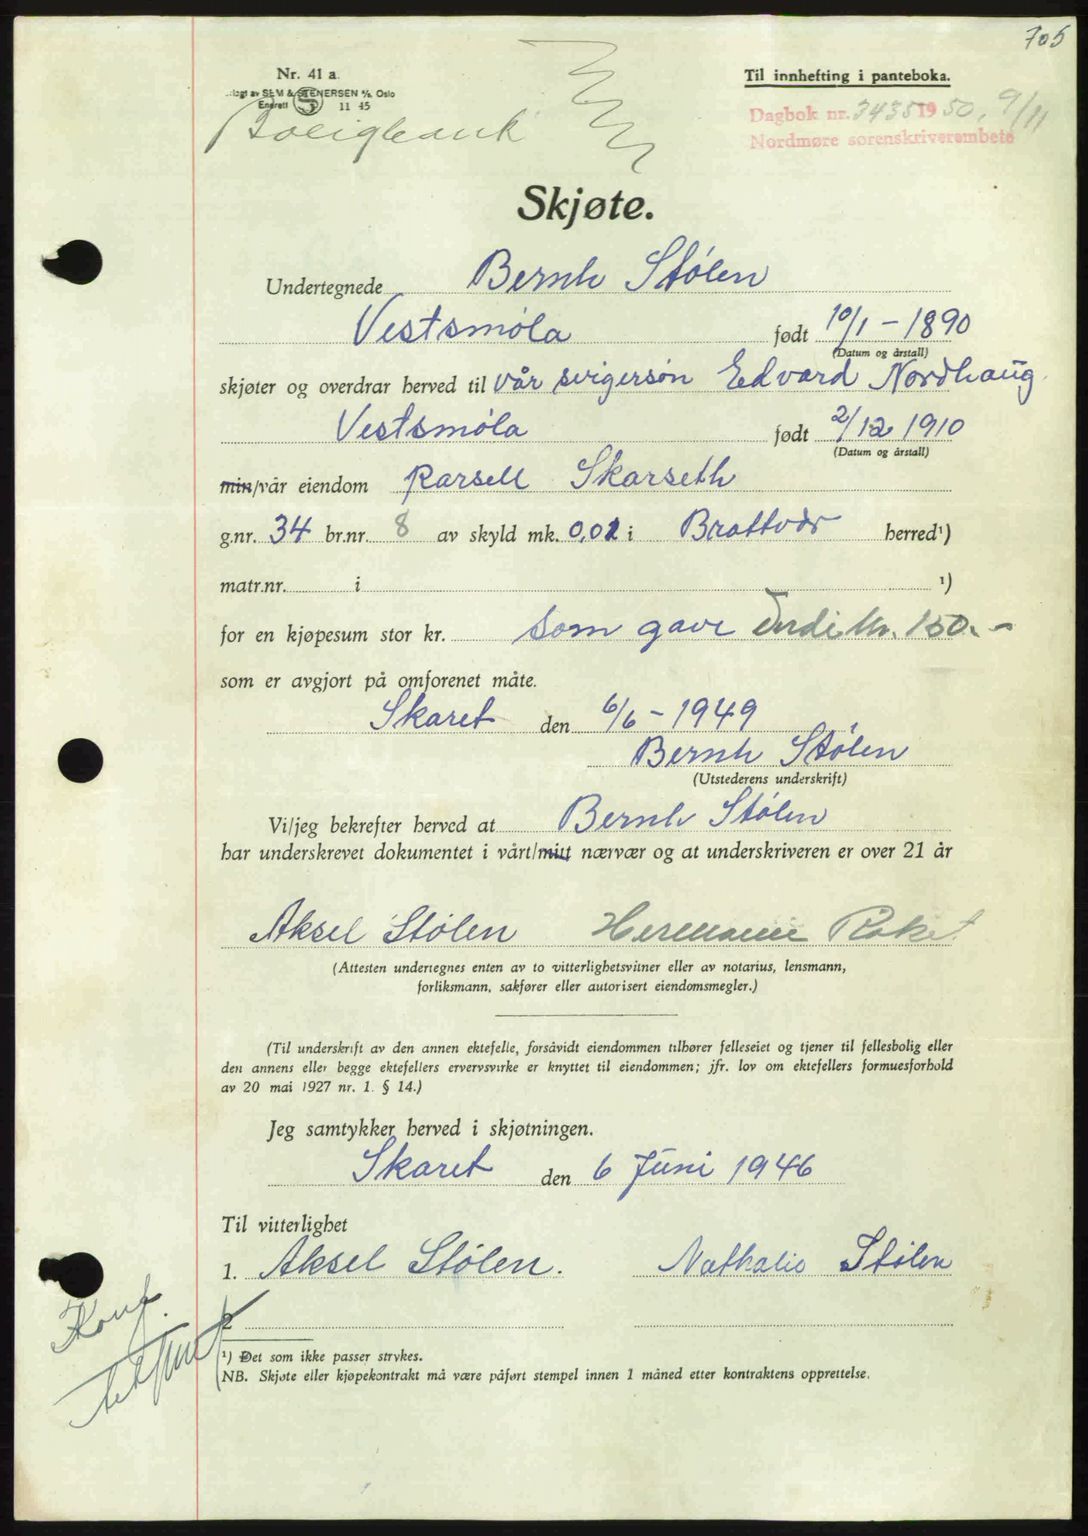 705
Nr. 41 a.
Til innhefting i panteboka.
SEM & STENERSEN A/S, Oslo
Enerett S 11 45
Dagbok nr. 3435 1950. 9/11
Boligbank
Nordmøre sorenskriverembete
Skjøte.
Undertegnede Bernh Stølen
Vestsmøla født 10/1 - 1890
(Datum og årstall)
skjøter og overdrar herved til vår svigersøn Edvard Nordhaug
Vestsmøla født 2/12 1910
(Datum og årstall)
min/vår eiendom Parsell Skarseth
g.nr. 34 br.nr. 8 av skyld mk. 0,01 i Brattvær herred¹)
matr.nr. i ¹)
for en kjøpesum stor kr. som gave Verdi kr. 150.-
som er avgjort på omforenet måte.
Skaret den 6/6 - 1949
Bernh Stølen
(Utstederens underskrift)
Vi/jeg bekrefter herved at Bernh Stølen
har underskrevet dokumentet i vårt/mitt nærvær og at underskriveren er over 21 år
Aksel Stølen Hermann
(Attesten undertegnes enten av to vitterlighetsvitner eller av notarius, lensmann,
forliksmann, sakfører eller autorisert eiendomsmegler.)
(Til underskrift av den annen ektefelle, forsåvidt eiendommen tilhører felleseiet og tjener til fellesbolig eller
den annens eller begge ektefellers ervervsvirke er knyttet til eiendommen; jfr. lov om ektefellers formuesforhold
av 20 mai 1927 nr. 1. § 14.)
Jeg samtykker herved i skjøtningen.
Skaret den 6 Juni 1946
Til vitterlighet
1. Aksel Stølen. Nathalie Stølen
2
Konf.
¹) Det som ikke passer strykes.
NB. Skjøte eller kjøpekontrakt må være påført stempel innen 1 måned etter kontraktens opprettelse.